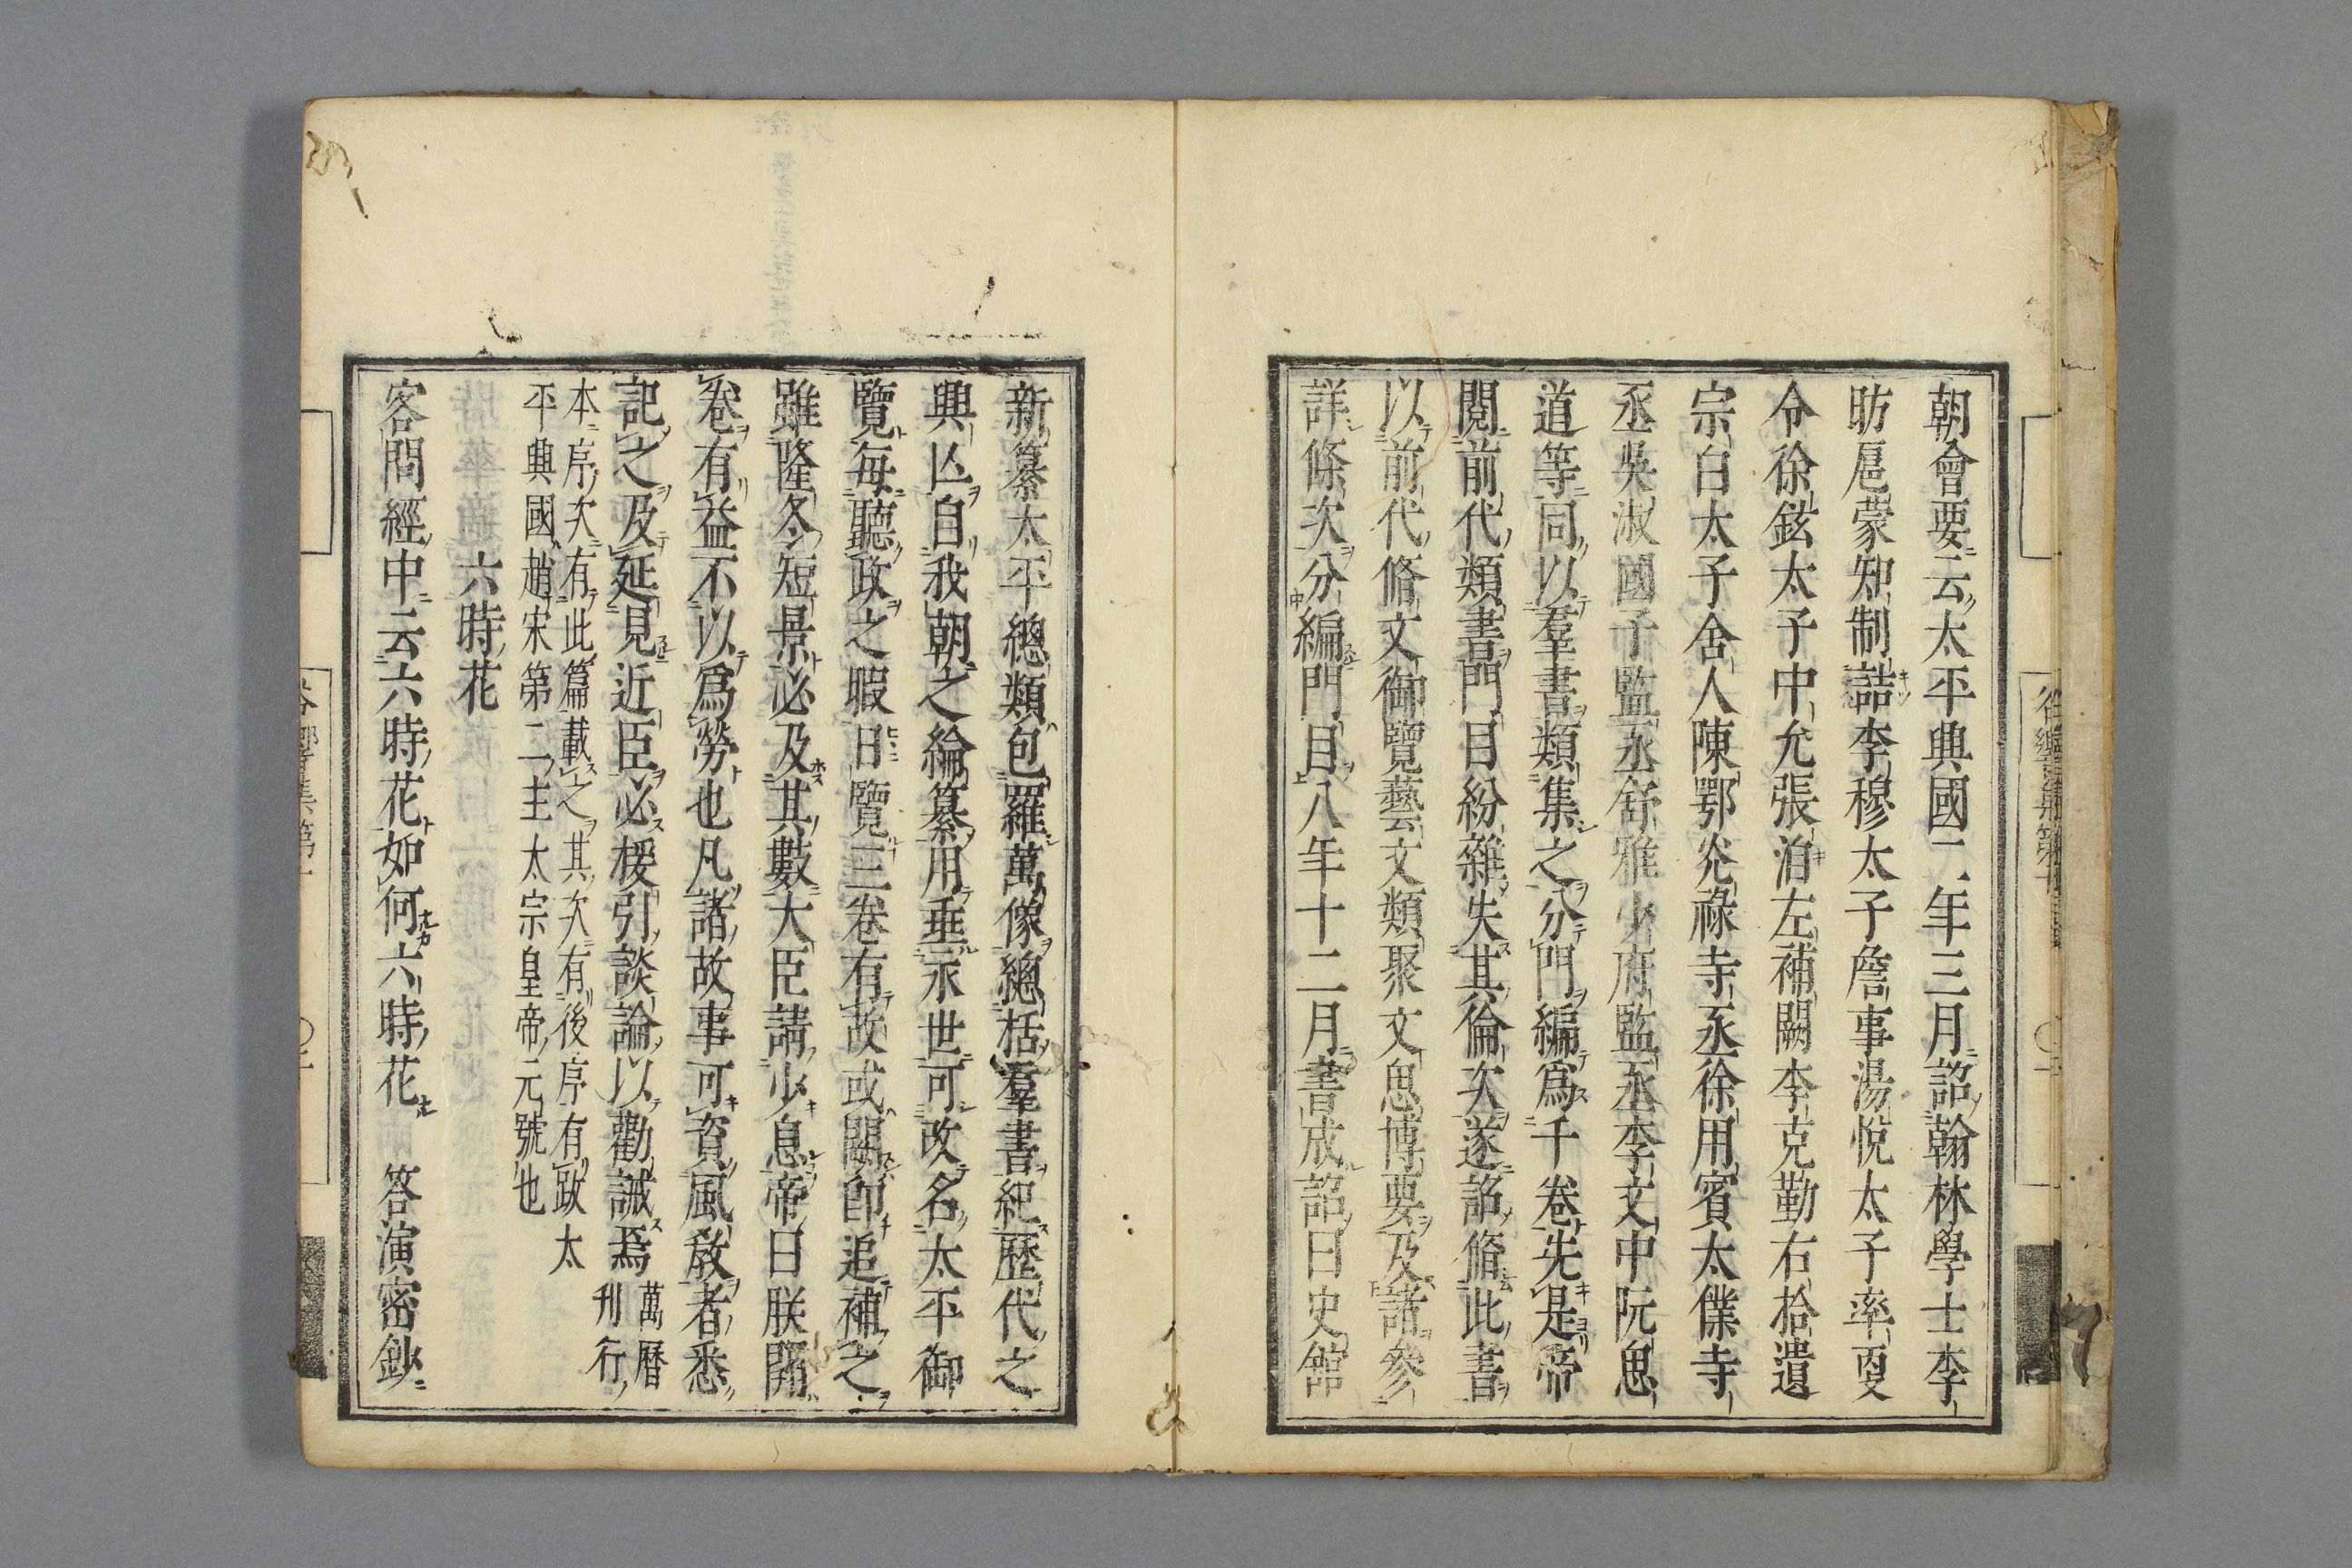 朝會要云太平典國二年三月詔翰林學士李
昉扈蒙知制誥李穆太子詹事湯悅太子率更
令徐鉉太子中允張洎左補闕李克勤右拾遺
宗白太子舍人陳鄂光祿寺丞徐用賓太僕寺
丞吳淑國子監丞舒雅少府監丞李文中阮思
道等同以羣書類集之分門編爲千卷先是帝
閱前代類書門目紛雜失其倫次遂詔脩此書
以前代脩文御覽藝文類聚文思博要及諸參
詳條次分編門目八年十二月書成詔曰史館
新纂太平總類包羅萬像總括羣書紀歷代之
興亾自我朝之綸纂用垂永世可改名太平御
覽每聽政之暇日覽三卷有故或闕卽追補之
雖隆冬短景必及其數大臣請少息帝曰朕開
卷有益不以爲勞也凡諸故事可資風敎者悉
記之及延見近臣必援引談論以勸誡焉
萬曆
刊行
本序次有此篇載之其次有後序有跋太
平興國趙宋第二主太宗皇帝元號也
六時花
客問經中云六時花如何六時花 答演密鈔